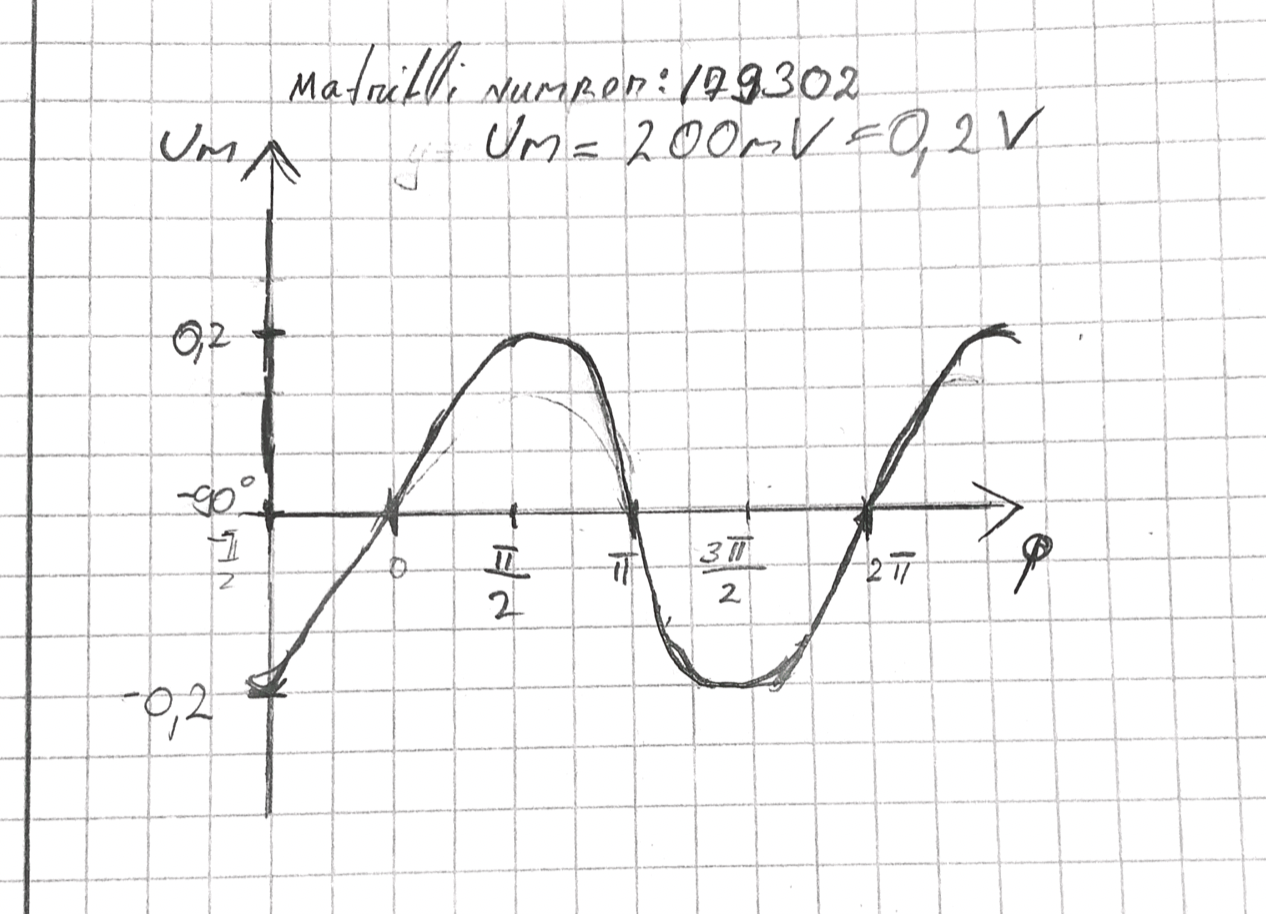 Matrikli number: 179302
Um = 200mV = 0,2V
Um
0,2
-90°
-π/2
0
π/2
π
3π/2
2π
φ
-0,2